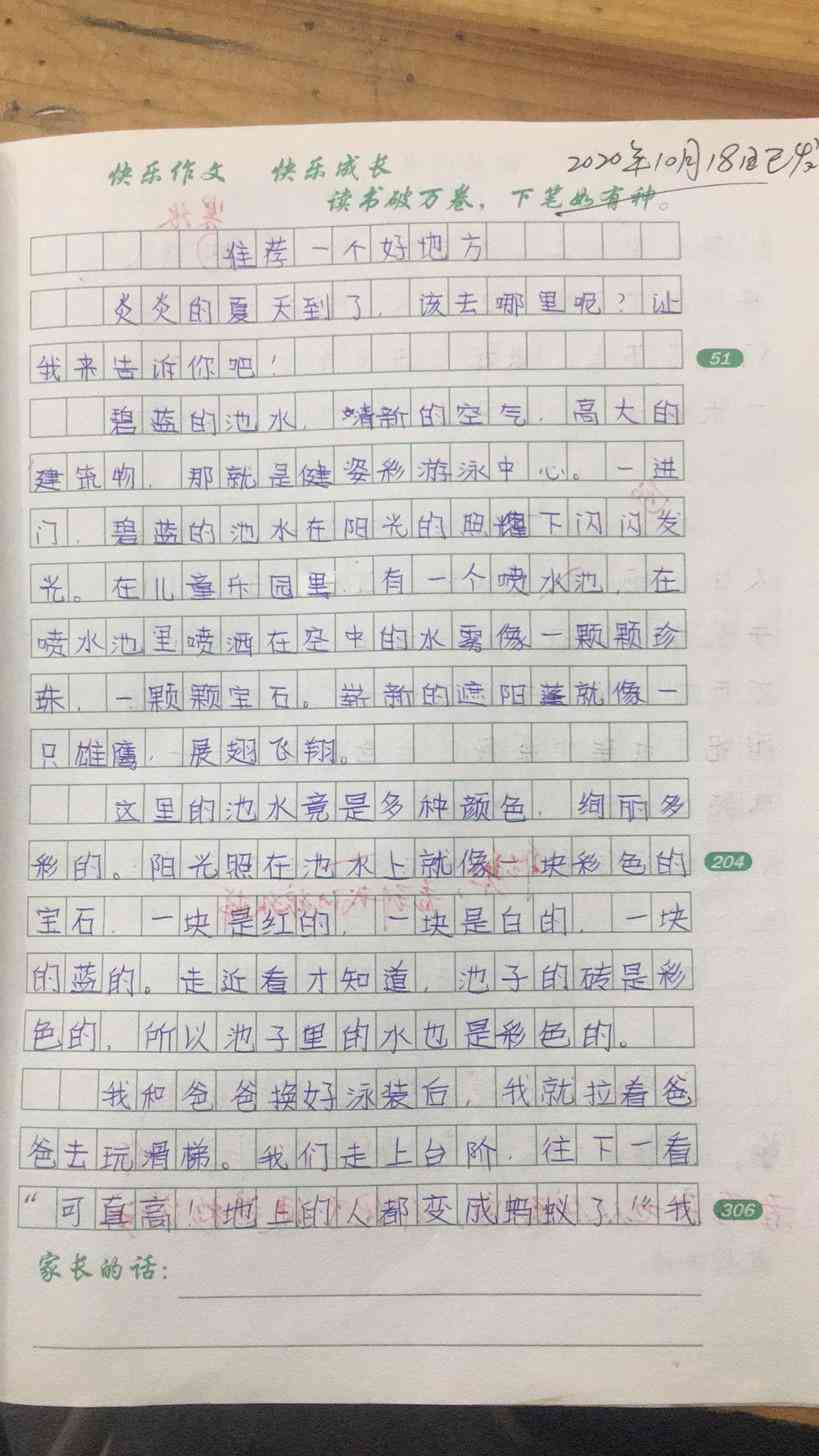 快乐作文 快乐成长
2020年10月18日
读书破万卷，下笔如有神。
推荐一个好地方
炎炎的夏天到了，该去哪里呢？让
我来告诉你吧！
51
碧蓝的池水，清新的空气，高大的
建筑物，那就是健姿彩游泳中心。一进
门，碧蓝的池水在阳光的照耀下闪闪发
光。在儿童乐园里，有一个喷水池，在
喷水池里喷洒在空中的水雾像一颗颗珍
珠，一颗颗宝石。崭新的遮阳蓬就像一
只雄鹰，展翅飞翔。
这里的池水竟是多种颜色，绚丽多
彩的。阳光照在池水上就像一块彩色的
204
宝石，一块是红的，一块是白的，一块
的蓝的。走近看才知道，池子的砖是彩
色的，所以池子里的水也是彩色的。
我和爸爸换好泳装后，我就拉着爸
爸去玩滑梯。我们走上台阶，往下一看
“可真高！地上的人都变成蚂蚁了！”我
306
家长的话：